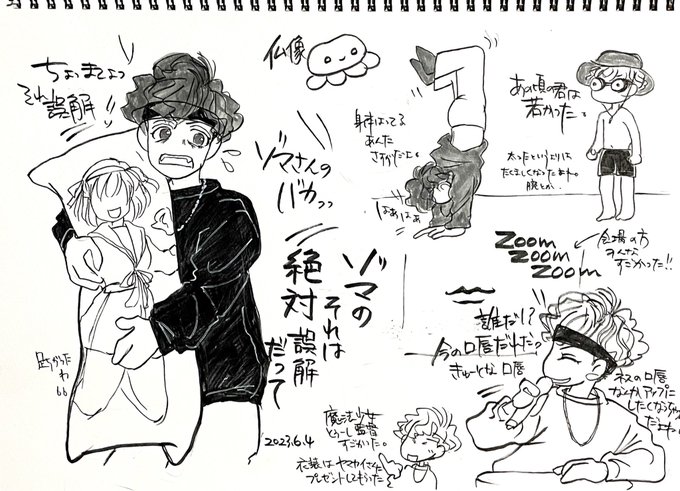 ちょっまてよっ
それ誤解
仏像
ゾマさんの
バカっっ
ゾマの
それは
絶対誤解
だって
2023.6.4
あの頃の君は
若かった。
太ったというよりは
たくましくなったよね。
腕とか..
はぁはぁ
ZOOM
ZOOM
ZOOM
会場の方
みんな
すごかった!!
誰だ!?
今の口唇だれだっ
きゅーとな口唇
ネスの口唇
なんかアップに
したくなっちゃう
だよね
魔法少女
すごかった。
衣装はヤマカイさんに
プレゼントしてもらった